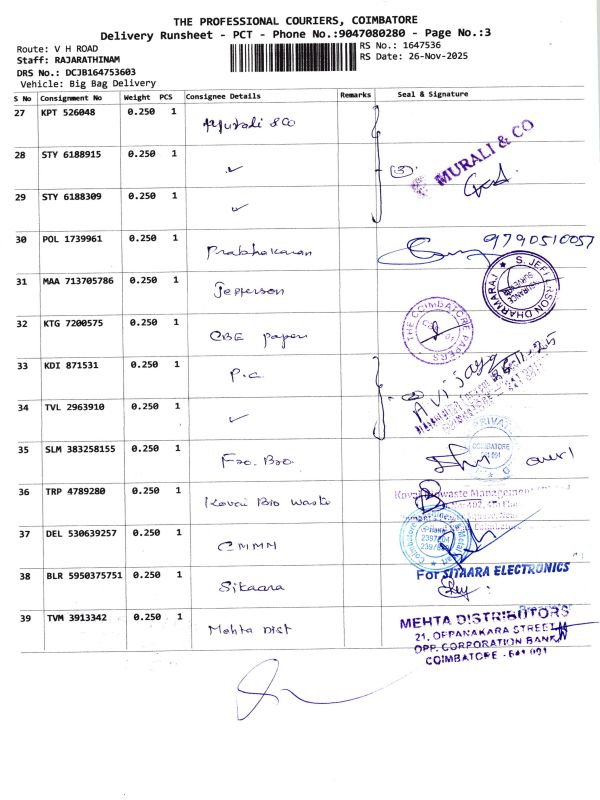 THE PROFESSIONAL COURIERS, COIMBATORE
Delivery Runsheet - PCT - Phone No.:9047080280 - Page No.:3
Route: V H ROAD
RS No.: 1647536
Staff: RAJARATHINAM
RS Date: 26-Nov-2025
DRS No.: DCJB164753603
Vehicle: Big Bag Delivery
S No Consignment No Weight PCS Consignee Details Remarks Seal & Signature
27 KPT 526048 0.250 1 Murali & Co
MURALI & CO
28 STY 6188915 0.250 1 ✓ (3)
29 STY 6188309 0.250 1 ✓
30 POL 1739961 0.250 1 Prabhakaran 9790510057
31 MAA 713705786 0.250 1 Jefferson
S. JEFFERSON DHARMARAJ
INSURANCE SURVEYOR
32 KTG 7200575 0.250 1 CBE papers
THE COIMBATORE PAPERS
33 KDI 871531 0.250 1 P.C.
Avijaya 26-11-25
34 TVL 2963910 0.250 1 ✓
35 SLM 383258155 0.250 1 Fro. Bro.
COIMBATORE
641 001
36 TRP 4789280 0.250 1 Kovai Bio Waste
Kovai Biowaste Management
37 DEL 530639257 0.250 1 CMMM
38 BLR 5950375751 0.250 1 Sitaara
For SITAARA ELECTRONICS
39 TVM 3913342 0.250 1 Mehta Dist
MEHTA DISTRIBUTORS
21, OPPANAKARA STREET
OPP. CORPORATION BANK
COIMBATORE - 641 001